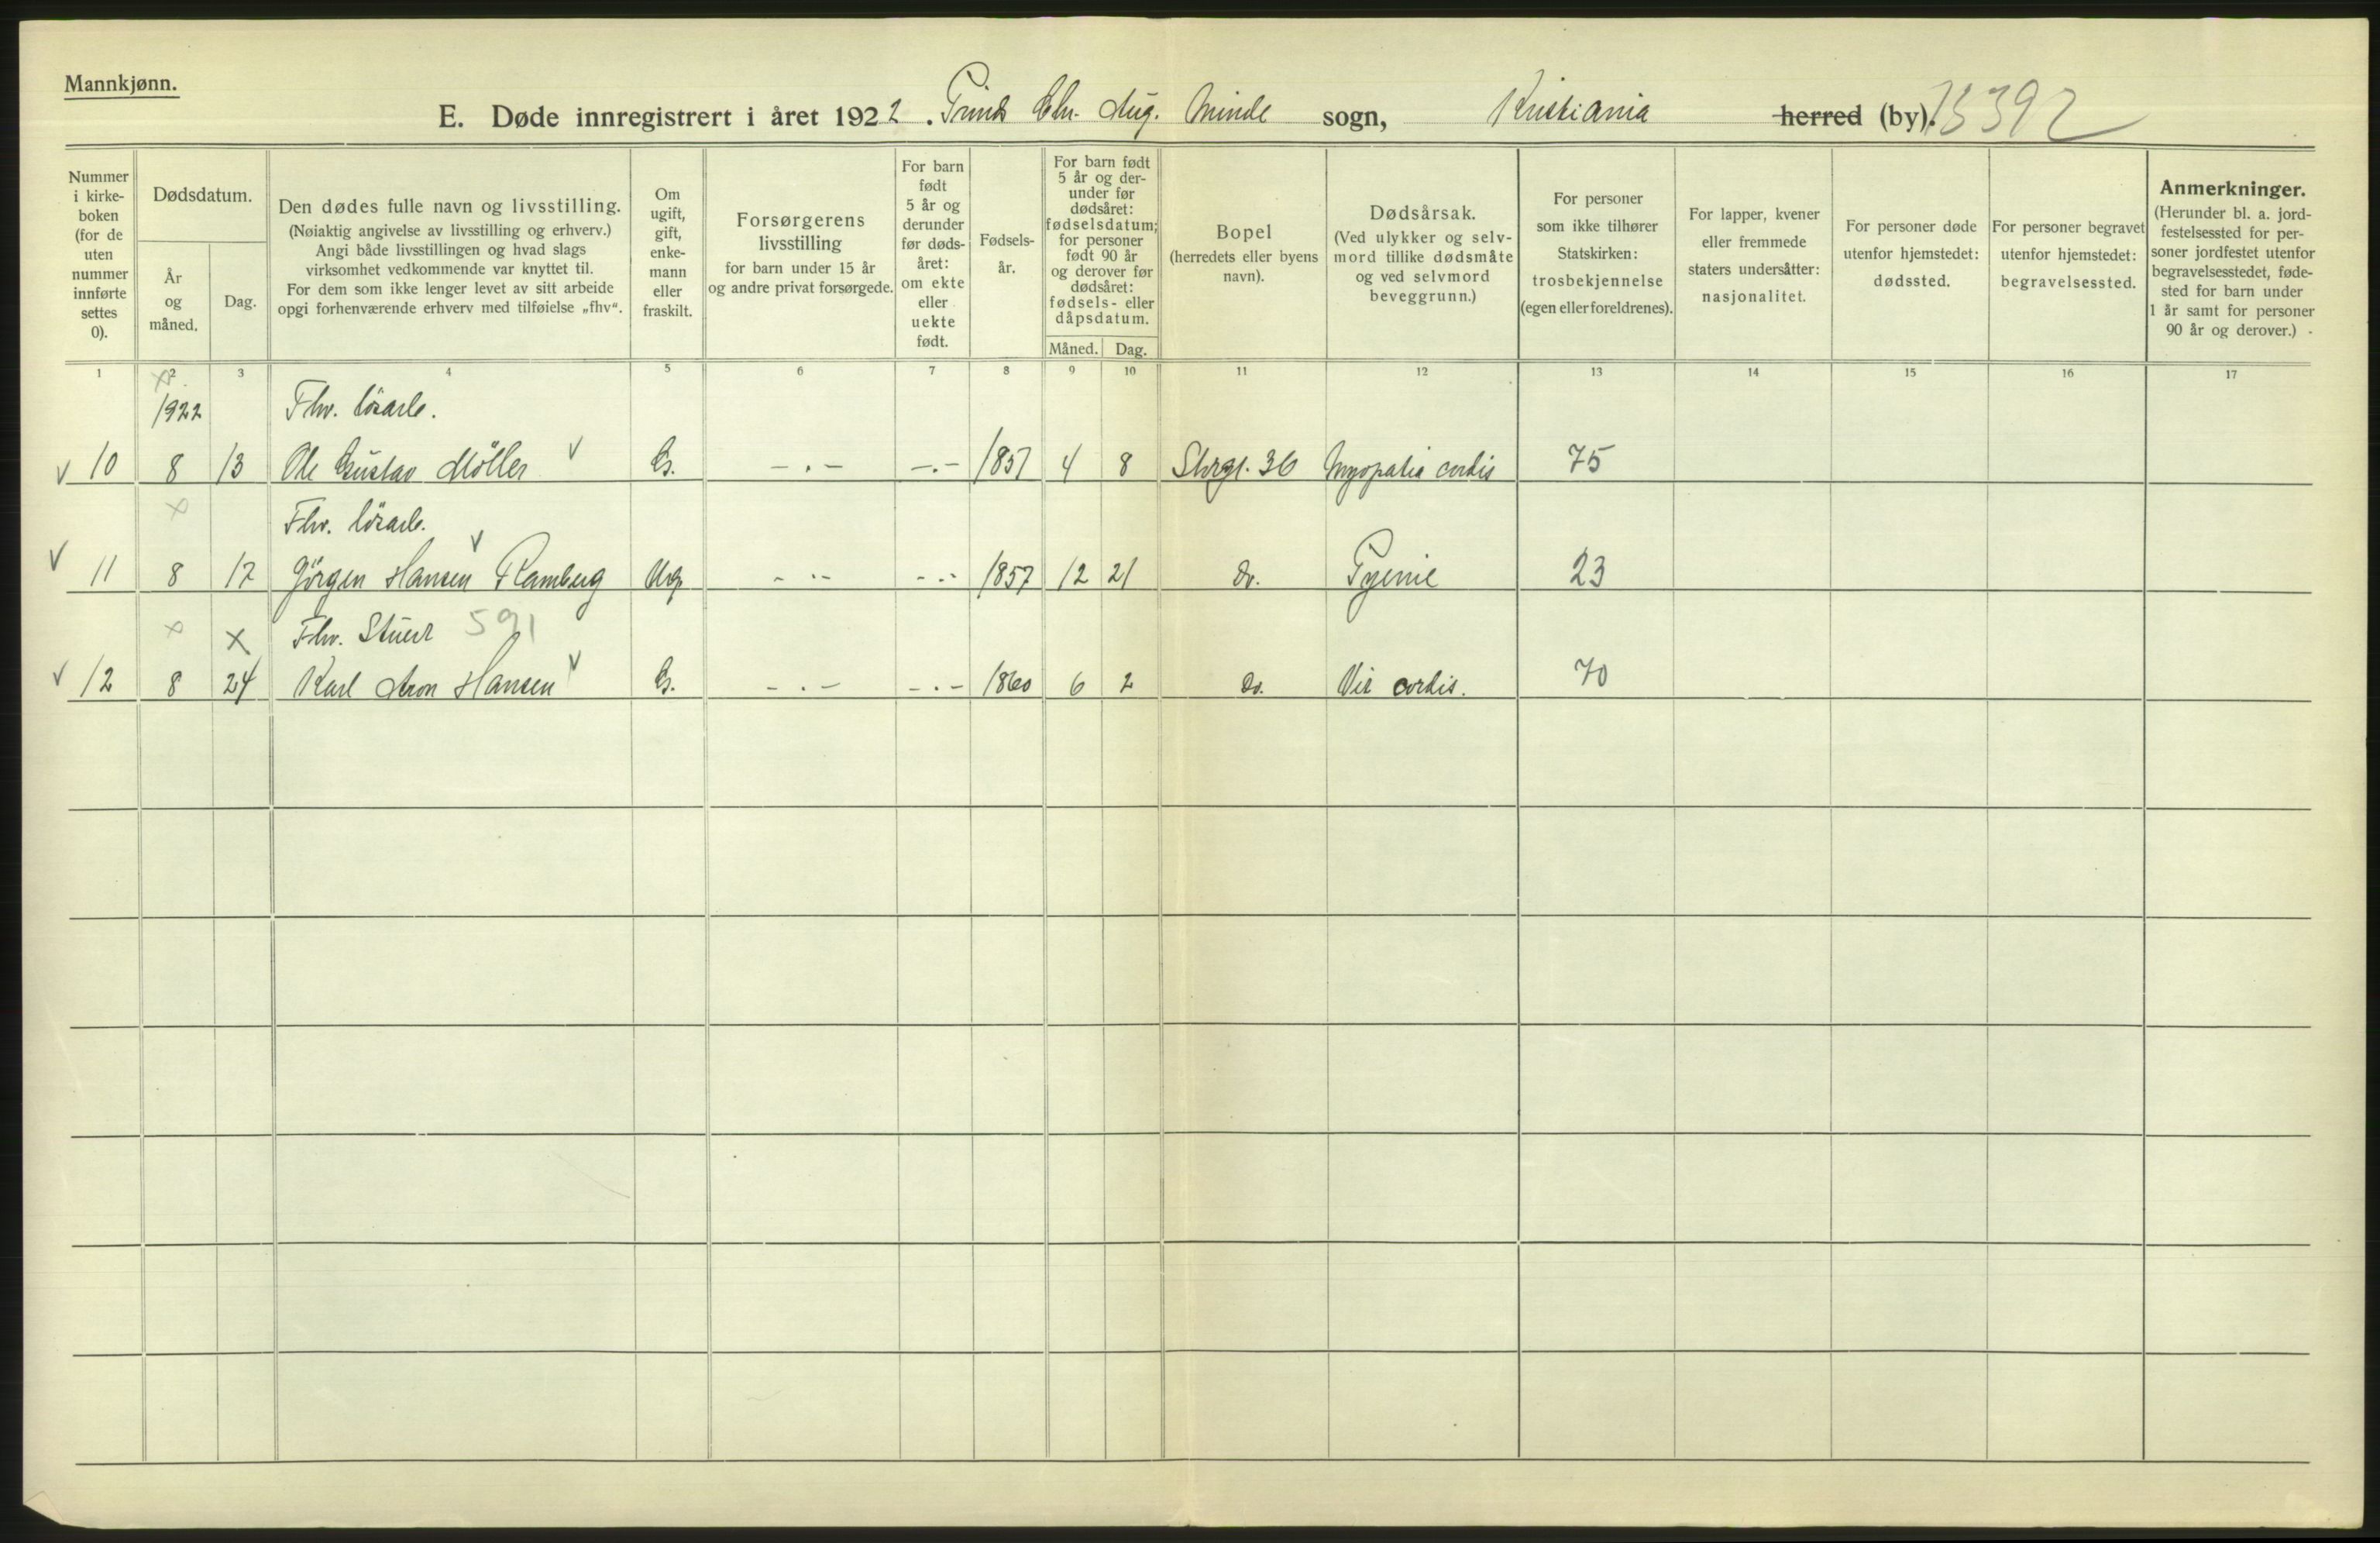 Mannkjønn.
E. Døde innregistrert i året 1922. Prinds Chr. Aug. Minde sogn, Kristiania herred (by).
Nummer i kirke-
boken
(for de
uten
nummer
innførte
settes
0).
Dødsdatum.
År
og
måned.
Dag.
Den dødes fulle navn og livsstilling.
(Nøiaktig angivelse av livsstilling og erhverv.)
Angi både livsstillingen og hvad slags
virksomhet vedkommende var knyttet til.
For dem som ikke lenger levet av sitt arbeide
opgi forhenværende erhverv med tilføielse „fhv“.
Om
ugift,
gift,
enke-
mann
eller
fraskilt.
Forsørgerens
livsstilling
for barn under 15 år
og andre privat forsørgede.
For barn
født
5 år og
derunder
før døds-
året:
om ekte
eller
uekte
født.
Fødsels-
år.
For barn født
5 år og der-
under før
dødsåret:
fødselsdatum;
for personer
født 90 år
og derover før
dødsåret:
fødsels- eller
dåpsdatum.
Måned. Dag.
Bopel
(herredets eller byens
navn).
Dødsårsak.
(Ved ulykker og selv-
mord tillike dødsmåte
og ved selvmord
beveggrunn.)
For personer
som ikke tilhører
Statskirken:
trosbekjennelse
(egen eller foreldrenes).
For lapper, kvener
eller fremmede
staters undersåtter:
nasjonalitet.
For personer døde
utenfor hjemstedet:
dødssted.
For personer begravet
utenfor hjemstedet:
begravelsessted.
Anmerkninger.
(Herunder bl. a. jord-
festelsessted for per-
soner jordfestet utenfor
begravelsesstedet, føde-
sted for barn under
1 år samt for personer
90 år og derover.)
1 2 3 4 5 6 7 8 9 10 11 12 13 14 15 16 17
1922 Fhv. lösarb.
10 8 13 Ole Gustav Möller G. -.- -.- 1857 4 8 Strgt. 36 Myopatia cordis 75
Fhv. lösarb.
11 8 17 Jörgen Hansen Ramberg Ug. -.- -.- 1857 12 21 Do. Pyemie 23
Fhv. Stuert 591
12 8 24 Karl Aron Hansen G. -.- -.- 1860 6 2 Do. Vit cordis. 70